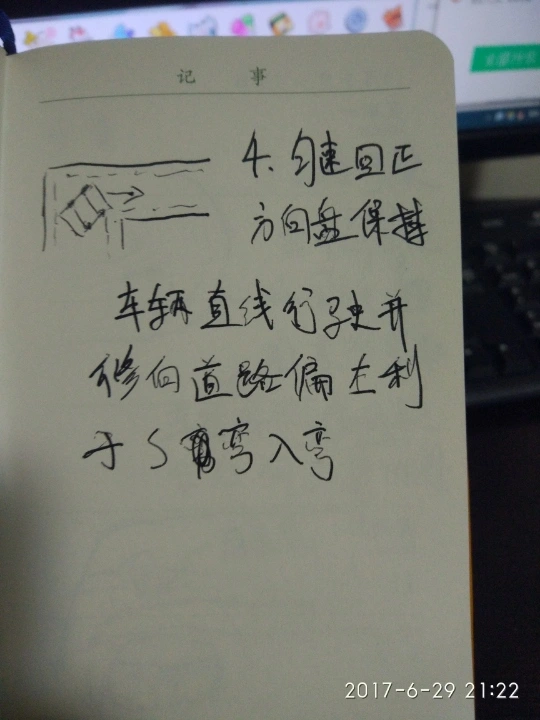 记 事
4. 匀速回正
方向盘保持
车辆直线行驶并
修向道路偏左利
于S弯入弯
2017-6-29 21:22